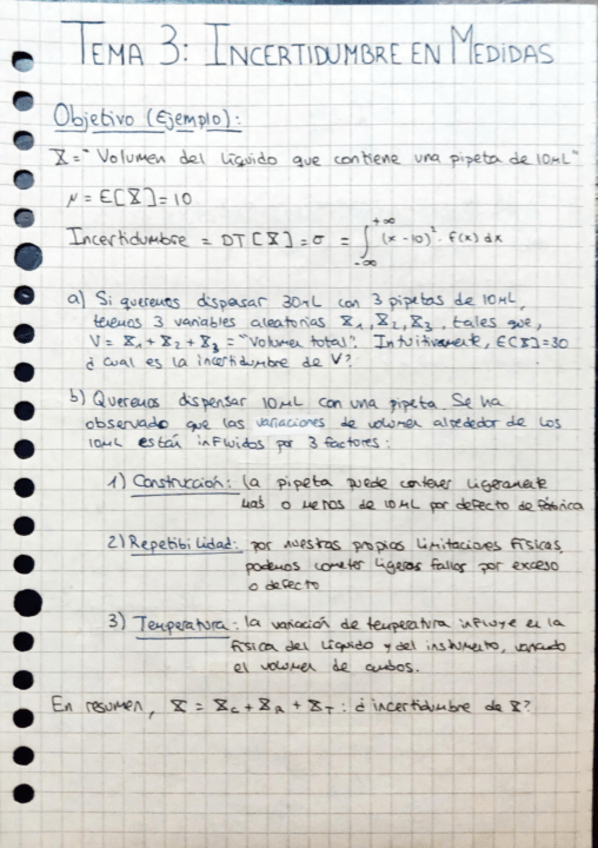 TEMA 3: INCERTIDUMBRE EN MEDIDAS
Objetivo (Ejemplo):
X = "Volumen del líquido que contiene una pipeta de 10mL"
μ = E[X] = 10
Incertidumbre = DT[X] = σ = ∫_{-∞}^{+∞} (x-10)² · f(x) dx
a) Si queremos dispensar 30mL con 3 pipetas de 10mL,
tenemos 3 variables aleatorias X₁, X₂, X₃, tales que,
V = X₁ + X₂ + X₃ = "Volumen total". Intuitivamente, E[X] = 30
¿ cual es la incertidumbre de V?
b) Queremos dispensar 10mL con una pipeta. Se ha
observado que las variaciones de volumen alrededor de los
10mL están influidos por 3 factores:
1) Construcción: la pipeta puede contener ligeramente
más o menos de 10mL por defecto de fábrica
2) Repetibilidad: por nuestras propias limitaciones físicas,
podemos cometer ligeros fallos por exceso
o defecto
3) Temperatura: la variación de temperatura influye en la
física del líquido y del instrumento, variando
el volumen de ambos.
En resumen, X = X_C + X_R + X_T : ¿ incertidumbre de X?